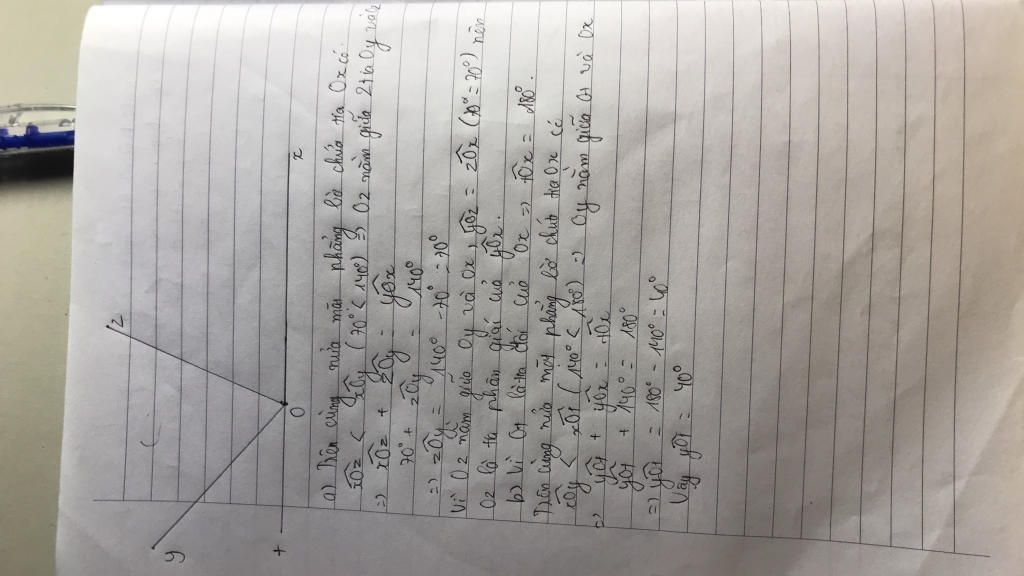 z
y
x
t
O
a) Trên cùng nửa mặt phẳng bờ chứa tia Ox có:
xOz < xOy (70° < 140°) => Oz nằm giữa 2 tia Oy và
=> xOz + zOy = yOx
70° + zOy = 140°
=> zOy = 140° - 70° = 70°
Vì Oz nằm giữa Oy và Ox, yOz = zOx (70° = 70°) nên
Oz là tia phân giác của yOx.
b) Vì Ot là tia đối của Ox => tOx = 180°.
Trên cùng nửa mặt phẳng bờ chứa tia Ox có
xOy < xOt (140° < 180°) => Oy nằm giữa Ot và Ox
=> yOt + yOx = tOx
yOt + 140° = 180°
=> yOt = 180° - 140° = 40°
Vậy yOt = 40°